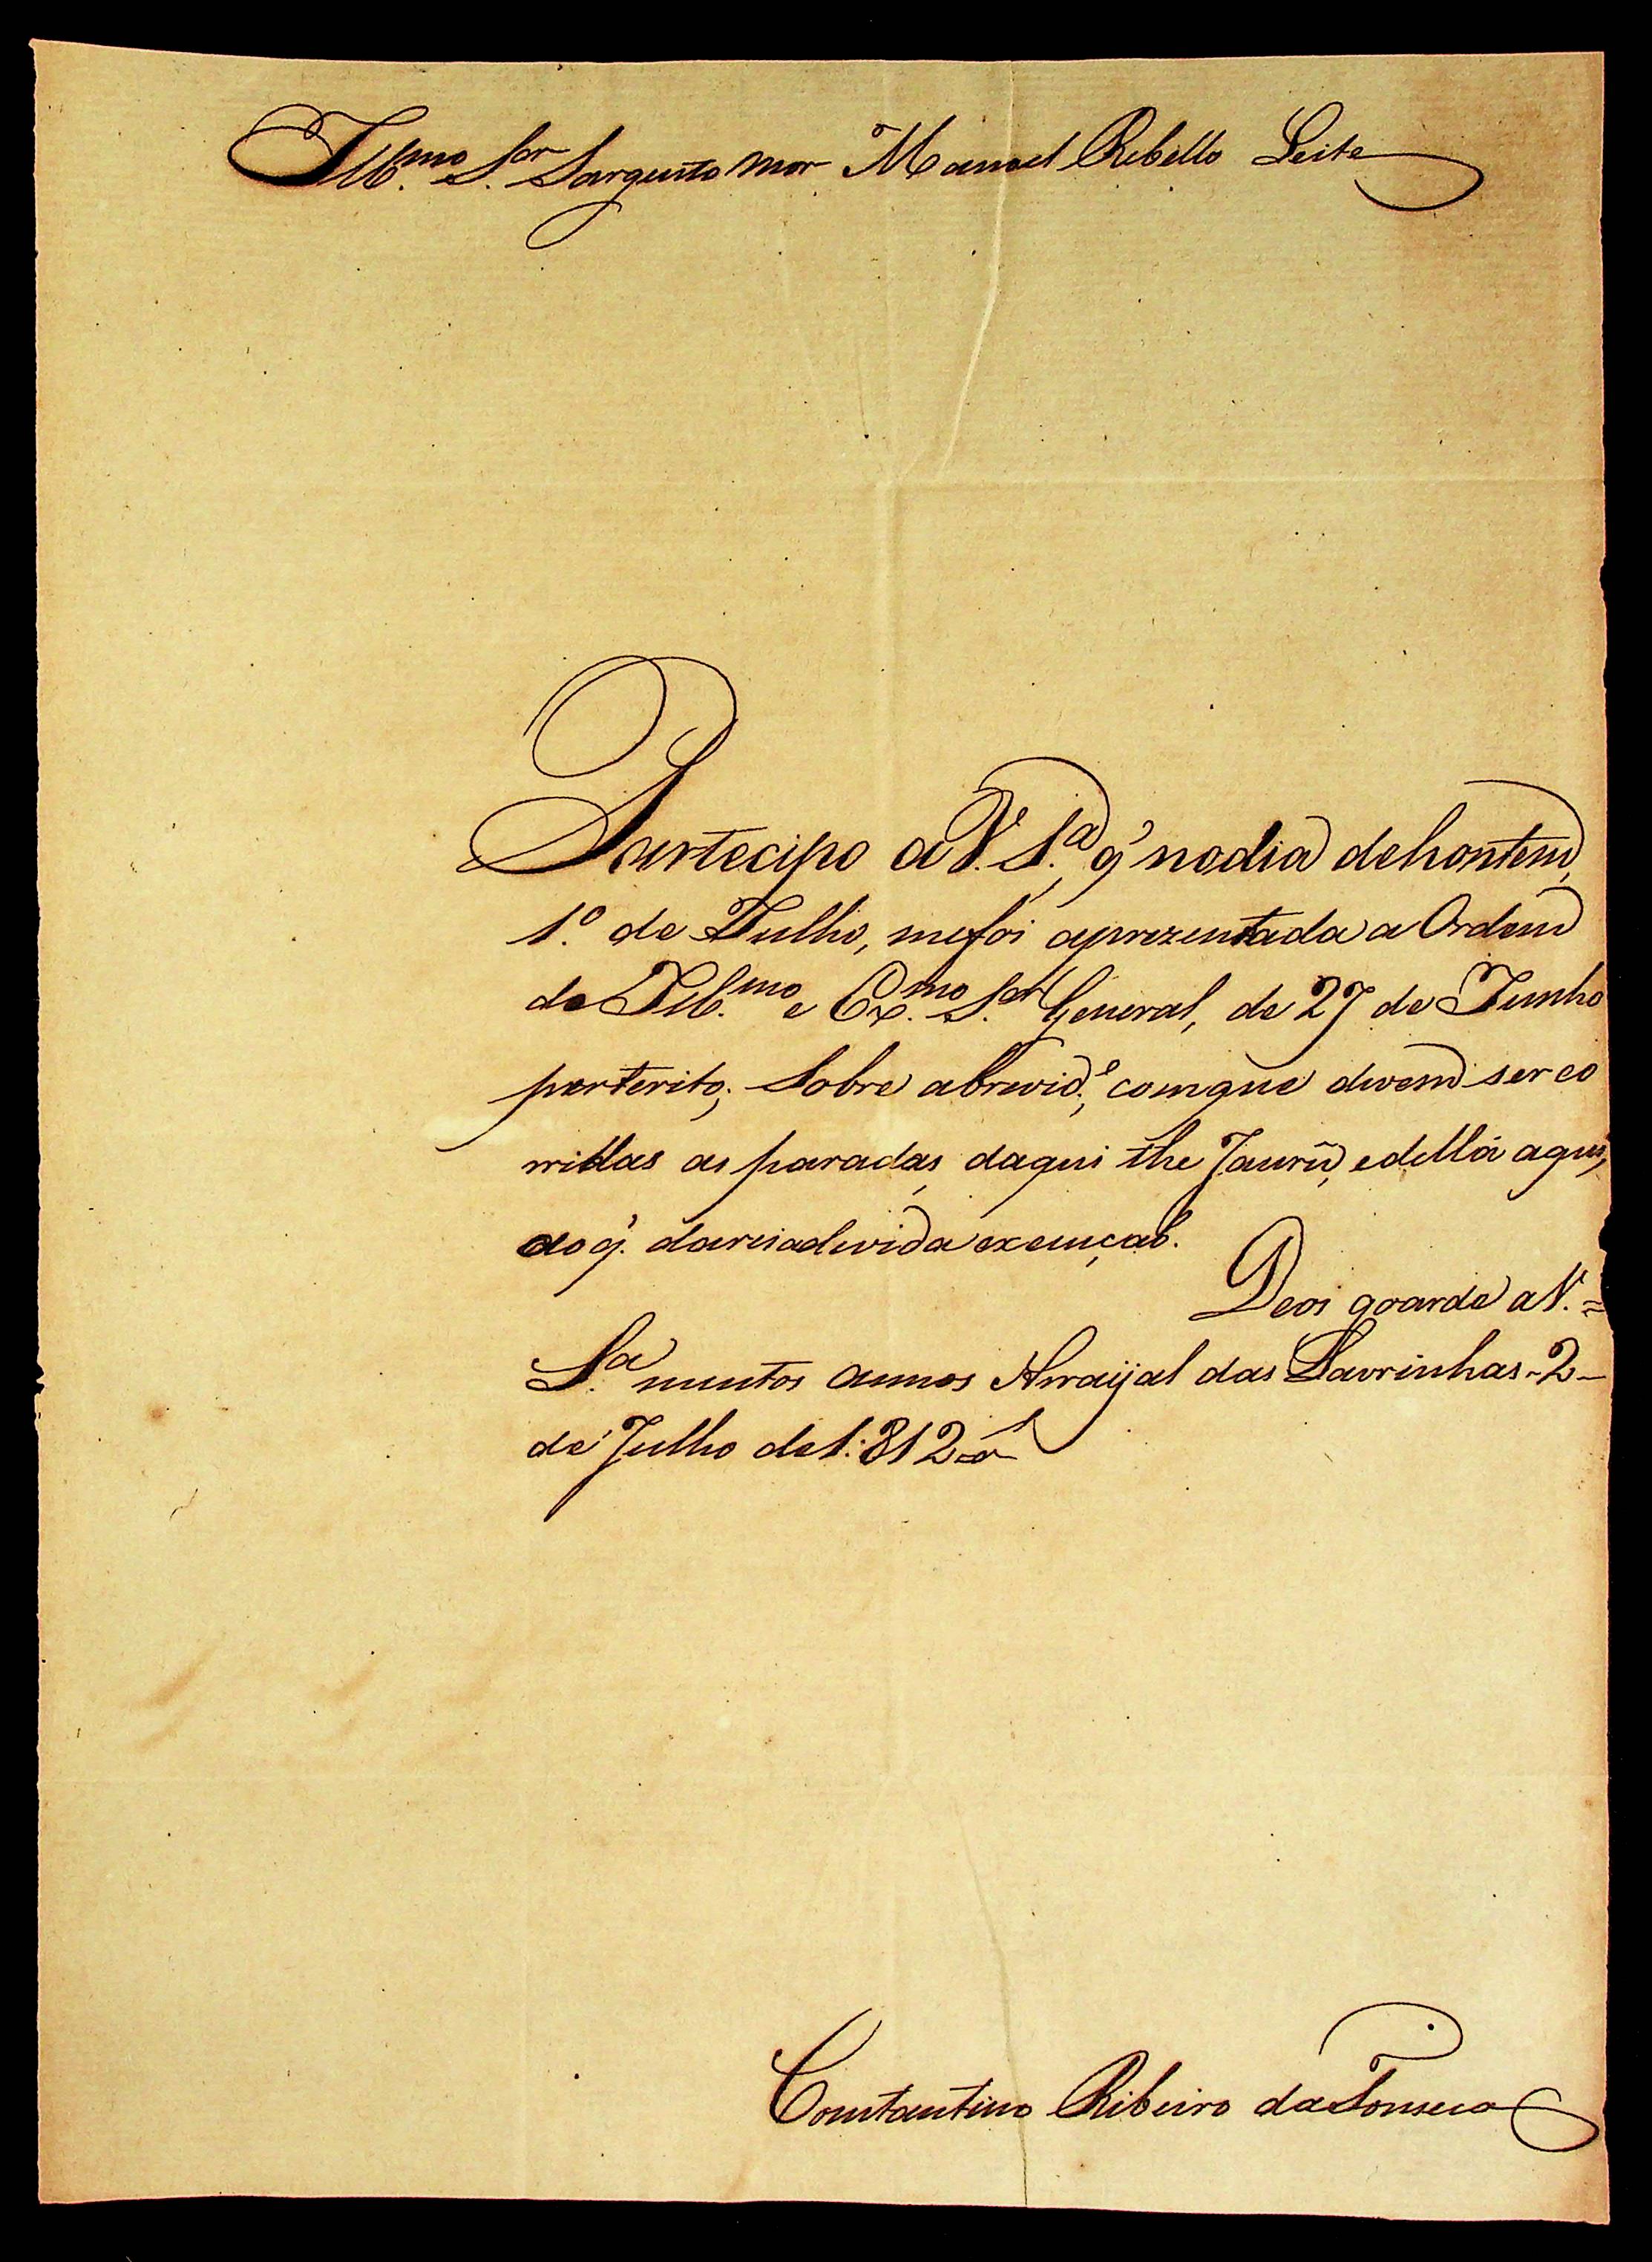 Ill.mo S.or Sargento mor Manoel Rebello Leite
Partecipo a V. S.a, q' nodia dehontem,
1.º de Julho, mefoi aprezentada a Ordem
do Ill.mo e Ex.mo S.or General, de 27 de Junho
preterito; Sobre abrevid.e, comque devem ser co
rridas as paradas, daqui the Jaurú, edellá aqui,
ao q'. dareiadevida execuçaõ.
Deos goarde a V.=
S.a muitos annos Arraijal das Lavrinhas-2-
de Julho de1:812
Constantino Ribeiro daFonseca